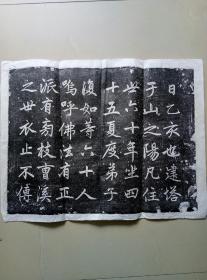 日乙亥也建塔
于山之陽凡住
世六十年坐四
十五夏度弟子
復如等六十人
嗚呼佛法有正
派有旁枝曹溪
之世衣止不傳